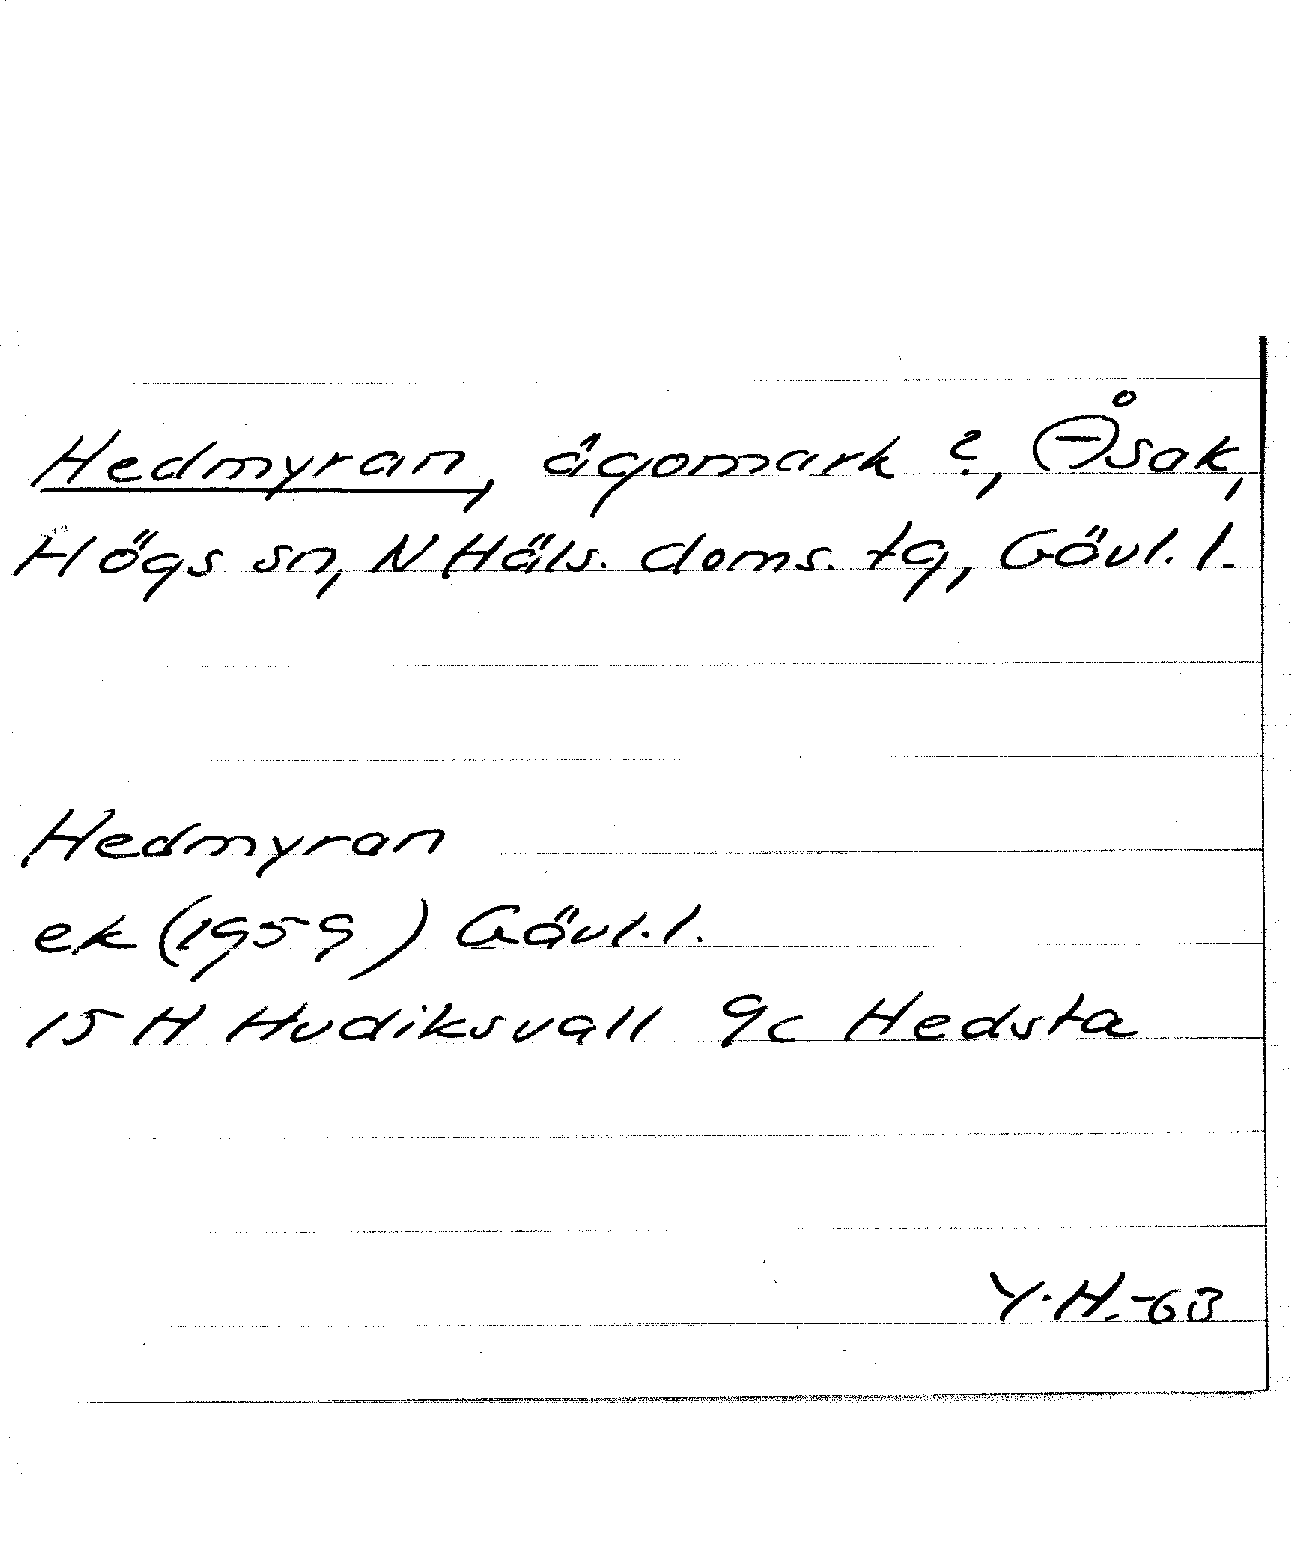 Hedmyran, ägomark ?, Åsak,
Högs sn, N Häls. doms. tg, Gävl. l.
Hedmyran
ek (1959) Gävl. l.
15 H Hudiksvall 9c Hedsta
Y.H.-63